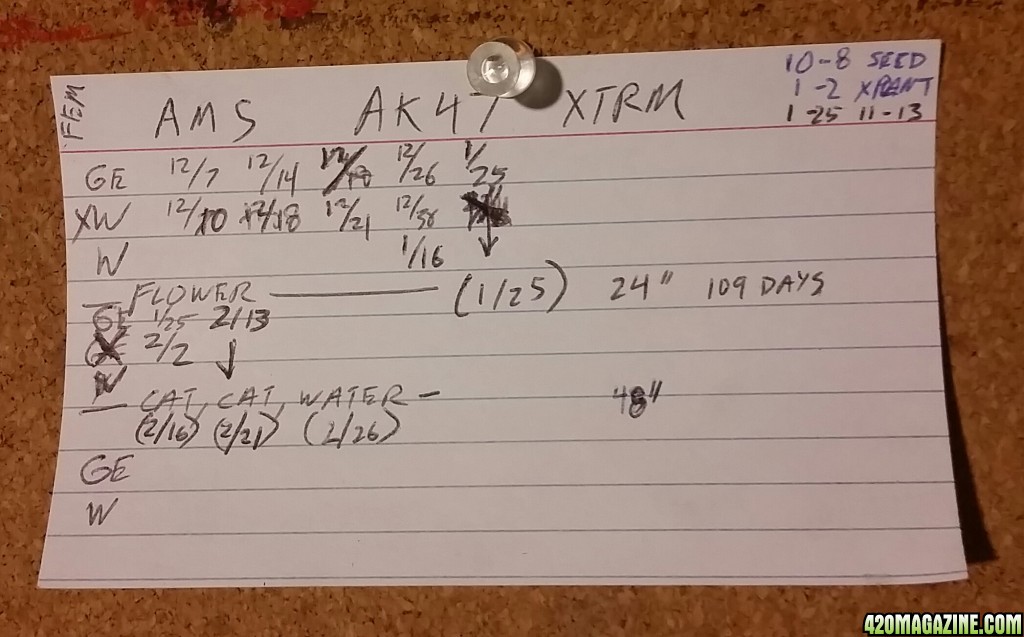 FEM
AMS AK47 XTRM
10-8 SEED
1-2 XPLANT
1-25 11-13
GE 12/7 12/14 12/18 12/26 1/25
XW 12/10 12/18 12/21 12/30
W 1/16
— FLOWER — (1/25) 24" 109 DAYS
GE 1/25 2/13
2/2
W
— CAT, CAT, WATER — 48"
(2/16) (2/21) (2/26)
GE
W
420MAGAZINE.COM